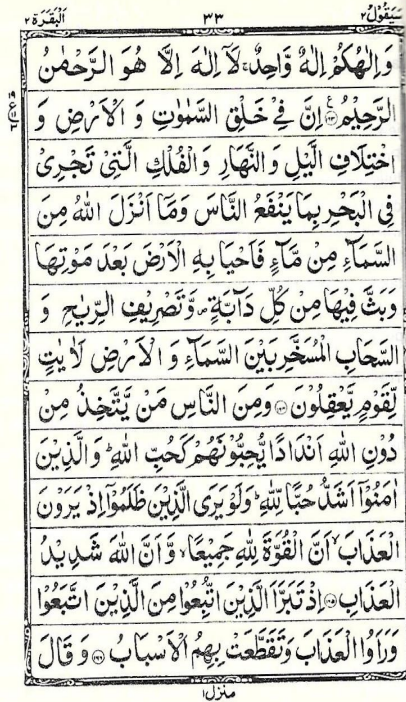 سَيَقُولُ ٢ ٣٣ اَلْبَقَرَة ٢
وَاِلٰهُكُمْ اِلٰهٌ وَّاحِدٌ ۚ لَآ اِلٰهَ اِلَّا هُوَ الرَّحْمٰنُ
الرَّحِيْمُ ۝١٦٣ اِنَّ فِيْ خَلْقِ السَّمٰوٰتِ وَ الْاَرْضِ وَ
اخْتِلَافِ الَّيْلِ وَ النَّهَارِ وَالْفُلْكِ الَّتِيْ تَجْرِيْ
فِي الْبَحْرِ بِمَا يَنْفَعُ النَّاسَ وَمَآ اَنْزَلَ اللّٰهُ مِنَ
السَّمَآءِ مِنْ مَّآءٍ فَاَحْيَا بِهِ الْاَرْضَ بَعْدَ مَوْتِهَا
وَبَثَّ فِيْهَا مِنْ كُلِّ دَآبَّةٍ ۪ وَّتَصْرِيْفِ الرِّيٰحِ وَ
السَّحَابِ الْمُسَخَّرِ بَيْنَ السَّمَآءِ وَ الْاَرْضِ لَاٰيٰتٍ
لِّقَوْمٍ يَّعْقِلُوْنَ ۝١٦٤ وَمِنَ النَّاسِ مَنْ يَّتَّخِذُ مِنْ
دُوْنِ اللّٰهِ اَنْدَادًا يُّحِبُّوْنَهُمْ كَحُبِّ اللّٰهِ ؕ وَالَّذِيْنَ
اٰمَنُوْٓا اَشَدُّ حُبًّا لِّلّٰهِ ؕ وَلَوْ يَرَى الَّذِيْنَ ظَلَمُوْٓا اِذْ يَرَوْنَ
الْعَذَابَ ۙ اَنَّ الْقُوَّةَ لِلّٰهِ جَمِيْعًا ۙ وَّ اَنَّ اللّٰهَ شَدِيْدُ
الْعَذَابِ ۝١٦٥ اِذْ تَبَرَّاَ الَّذِيْنَ اتُّبِعُوْا مِنَ الَّذِيْنَ اتَّبَعُوْا
وَرَاَوُا الْعَذَابَ وَتَقَطَّعَتْ بِهِمُ الْاَسْبَابُ ۝١٦٦ وَ قَالَ
منزل ١